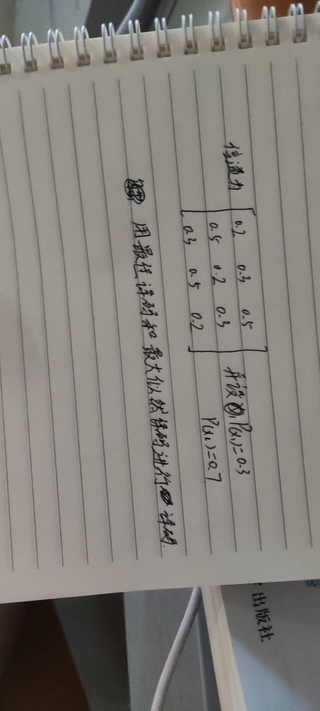 信道为 [0.2 0.3 0.5
0.5 0.2 0.3
0.3 0.5 0.2] 并设 P(x₁)=0.3
P(x₂)=0.7
用最佳译码和最大似然译码进行译码.
出版社